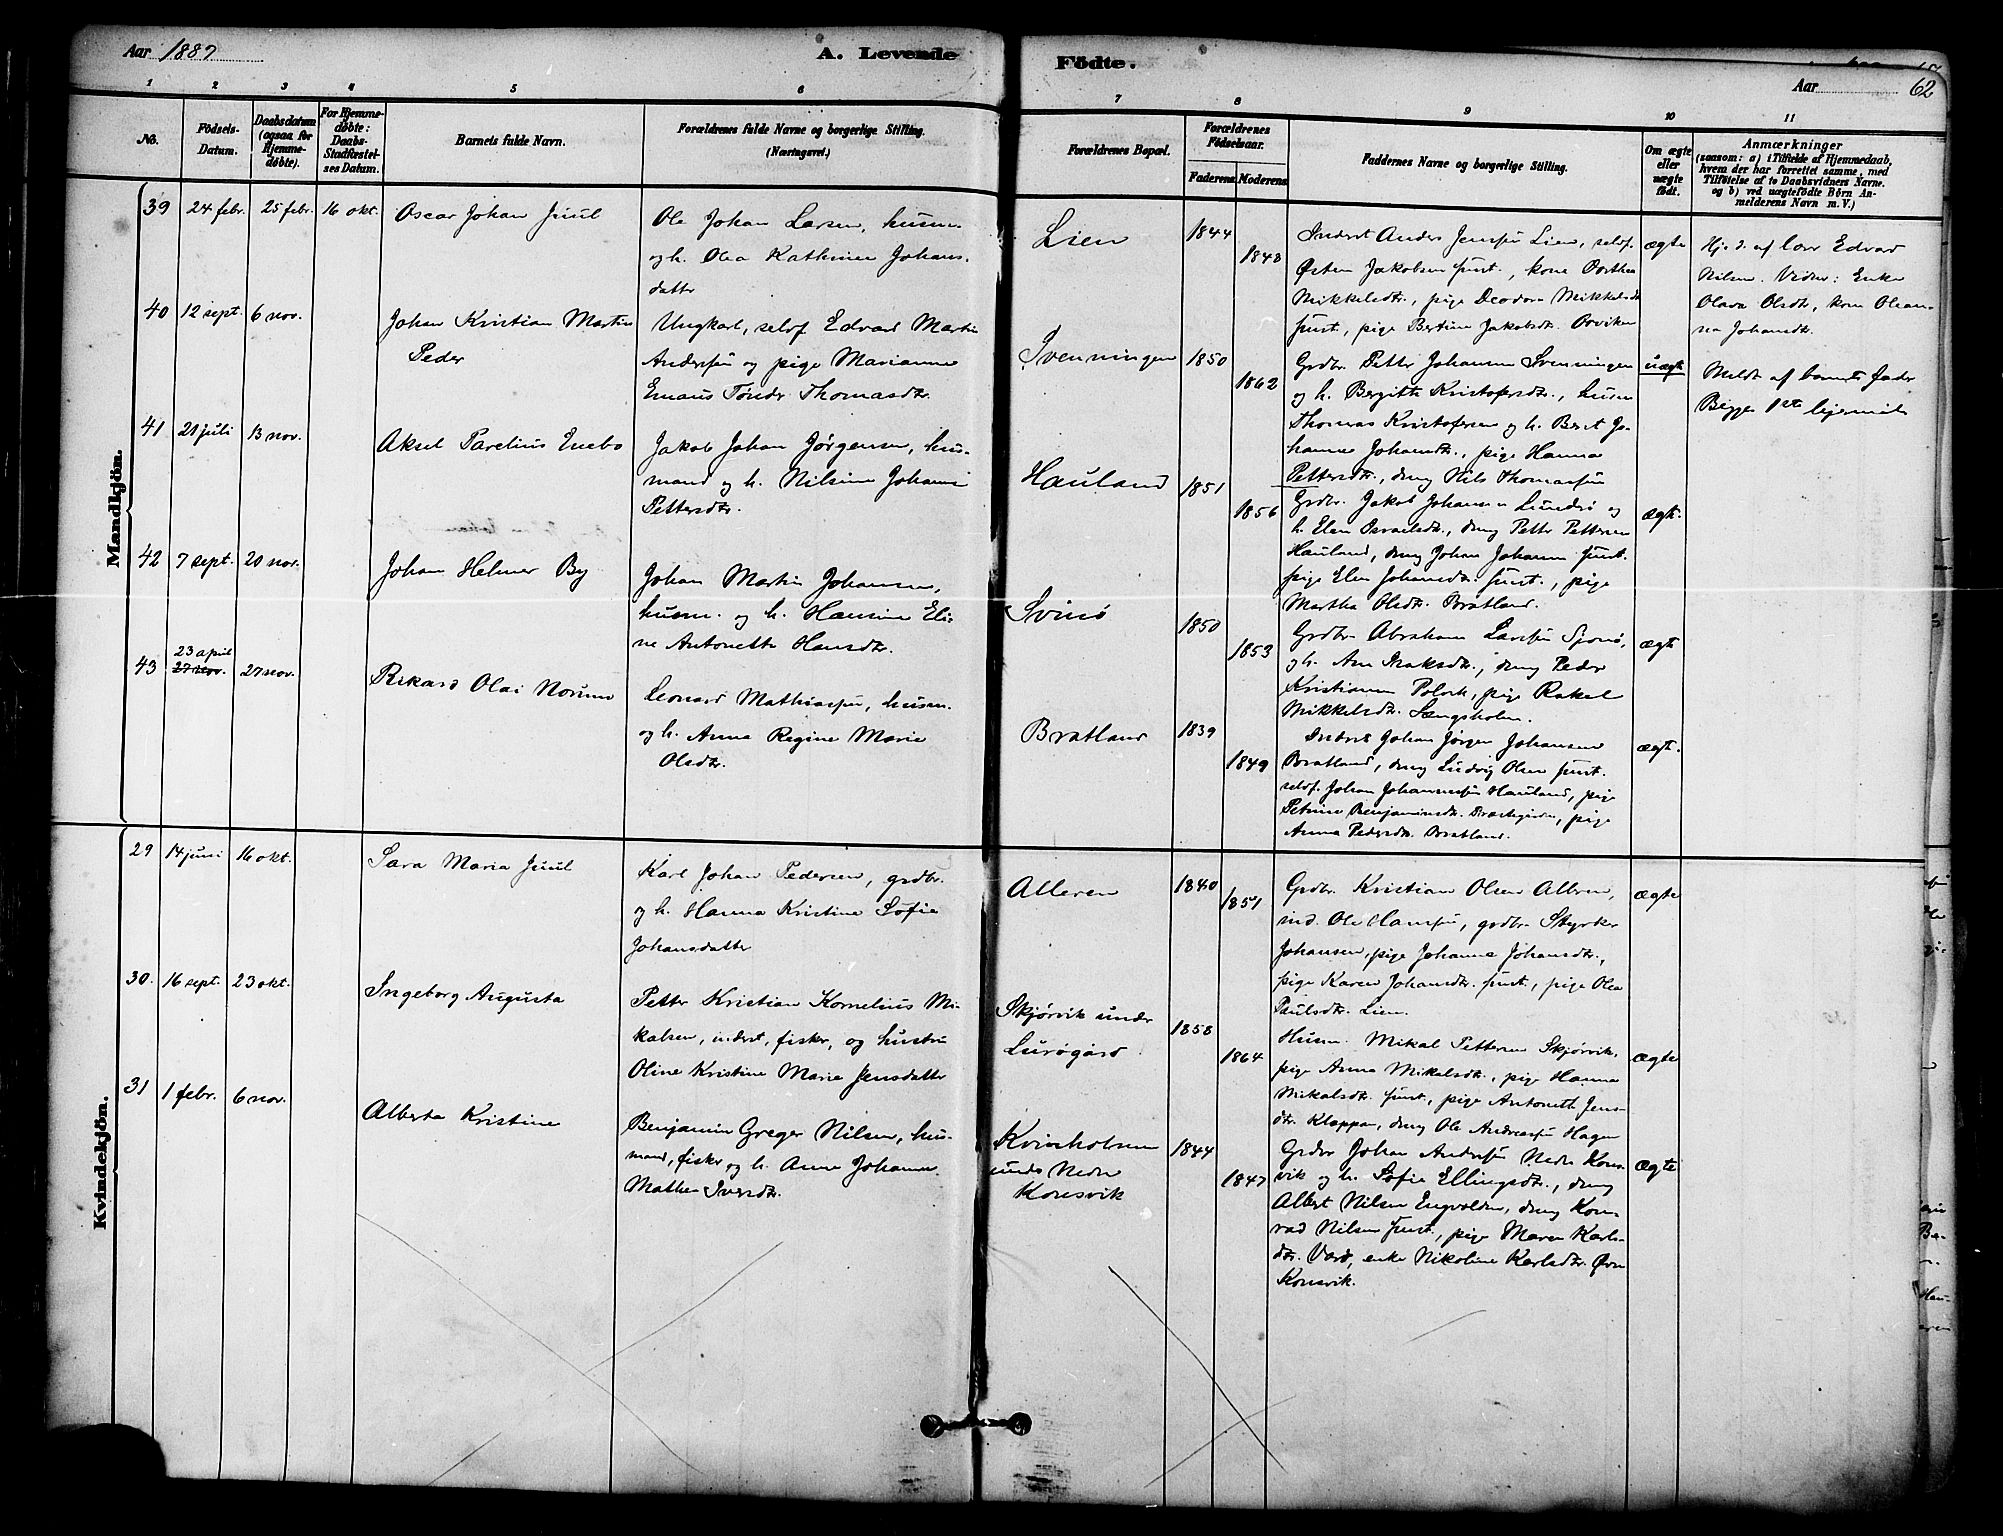 Aar 1887
A. Levende
Födte.
Aar
62
1
2
3
4
5
6
7
8
9
10
11
No.
Födsels-
Datum.
Daabsdatum
(ogsaa for
Hjemme-
døbte).
For Hjemme-
døbte:
Daabs-
Stadfæstel-
ses Datum.
Barnets fulde Navn.
Forældrenes fulde Navne og borgerlige Stilling.
(Næringsvei.)
Forældrenes Bopæl.
Forældrenes
Födselsaar.
Faderens
Moderens
Faddernes Navne og borgerlige Stilling.
Om ægte
eller
uægte
födt.
Anmærkninger
(saasom: a) i Tilfælde af Hjemmedaab,
hvem der har forrettet samme, med
Tilföielse af to Daabsvidners Navne.
og b) ved uægtefödte Börn An-
melderens Navn m. V.)
Mandkjön.
39 24 febr. 25 febr. 16 okt.
Oscar Johan Juul
Ole Johan Larsen, husm.
og h. Olea Kathrine Johans-
datter
Lien
1844
1848
Inderst Anders Jensen Lien, selvf.
Østen Jakobsen smst., kone Dorthea
Mikkelsdtr., pige Deodora Mikkelsdtr
smst., pige Bertine Jakobsdtr.
ægte
Hj. d. af lær Edvard
Nilsen. Vidner: Enke
Olava Olsdtr, kone Olean-
na Johansdtr.
40 12 sept. 6 nov.
Johan Kristian Martin
Peder
Ungkarl, selvf Edvard Martin
Andersen og pige Marianne
Emaus Tønder Thomasdtr.
Svenningen
1850
1862
Grdbr. Petter Johansen Svenningen
og h. Bergitte Kristofersdtr., husm
Thomas Kristofersen og h. Berit Jo-
hanna Johansdtr., pige Hanna
Pettersdtr., dreng Nils Thomassen
uægte
Meldt af barnets fader
Begges 1ste leiermaal
41 21 juli 13 nov.
Aksel Parelius Enebo
Jakob Johan Jørgensen, hus-
mand og h. Nilsine Johanna
Pettersdtr.
Hauland
1851
1856
Grdbr. Jakob Johansen Lundø og
h. Elen Israelsdtr., dreng Petter Pettersen
Hauland, dreng Johan Johansen smst.
pige Elen Johansdtr. smst., pige
Martha Olsdtr. Bratland.
ægte
42 7 sept. 20 nov.
Johan Helmer By
Johan Martin Johansen,
husm. og h. Hansine Eli-
ne Antonette Hansdtr.
Svinø
1850
1853
Grdbr. Abraham Larsen Sjonø,
og h. Ane Isaksdtr., dreng Peder
Kristiansen, pige Rakel
Mikkelsdtr. Langsholm.
ægte
43 23 april 27 nov. 27 nov.
Rikard Olai Norum
Leonard Mathiassen, husm.
og h. Anna Regine Marie
Olsdtr.
Bratland
1839
1849
Inderst Johan Jørgen Johansen
Bratland, dreng Ludvig Olsen smst.
selvf. Johan Johannessen Hauland, pige
Petrine Benjaminsdtr., pige
Anna Pedersdtr. Bratland.
ægte.
Kvindekjön.
29 14 juni 16 okt.
Sara Maria Juul
Karl Johan Pedersen, grdbr.
og h. Hanna Kristine Sofie
Johansdatter
Alleren
1840
1851
Grdbr. Kristian Olsen Alleren,
ind. Ole Hansen, grdbr. Styrker
Johansen, pige Johanna Johansdtr.,
pige Karen Johansdtr. smst., pige Olea
Paulsdtr. Lien.
ægte
30. 16 sept. 23 okt.
Ingeborg Augusta
Petter Kristian Kornelius Mi-
kalsen, inderst, fisker, og hustru
Oline Kristine Marie Jensdatter
Skjørvik under
Lurøgård.
1858
1864
Husm. Mikal Pettersen Skjørvik,
pige Anna Mikalsdtr., pige Hanna
Mikalsdtr. smst., pige Antonette Jens-
dtr. Kloppen, dreng Ole Andreassen Hagen
ægte
31 1 febr. 6 nov.
Alberta Kristine
Benjamin Greger Nilsen, hus-
mand, fisker og h. Anne Johanna
Mathea Iversdtr.
Kvinholmen
under Nedre
Konsvik
1844
1847
Grdbr Johan Andersen Nedre Kons-
vik og h. Sofie Ellingsdtr., dreng
Albert Nilsen Engvolden, dreng Kon-
rad Nilsen smst., pige Maren Karls-
dtr. Varø, enke Nikoline Karlsdtr. Øvre
Konsvik.
ægte